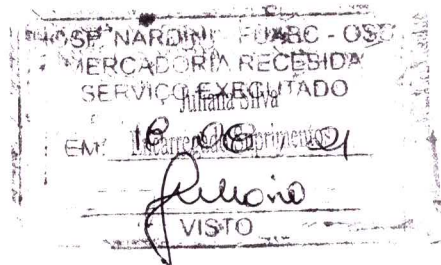 HOSP NARDINI FUABC - OSS
MERCADORIA RECEBIDA
SERVIÇO EXECUTADO
Juliana Silva
EM: 16 08 21
Encarregada Suprimentos
Juliana
VISTO